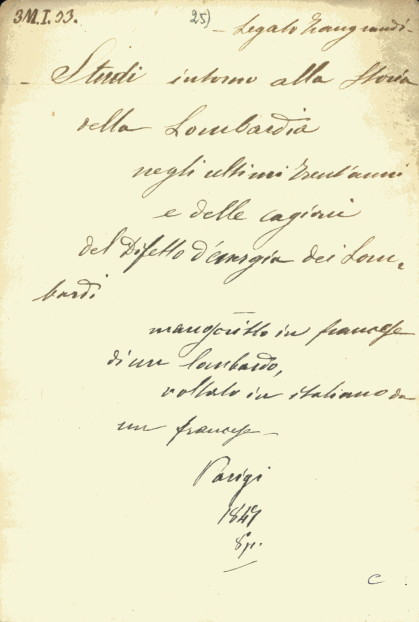 3M.I.33.
25)
- Legato Zangrandi -
- Studi intorno alla Storia
della Lombardia
negli ultimi trent'anni
e delle cagioni
del Difetto d'energia dei Lom-
bardi
—
manoscritto in francese
di un lombardo,
voltato in italiano da
un francese —
Parigi
1847
8p.
—
C.